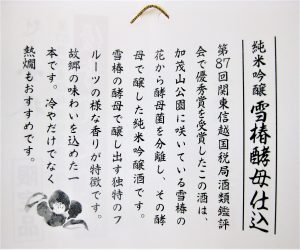 純米吟醸 雪椿酵母仕込
第87回関東信越国税局酒類鑑評
会で優秀賞を受賞したこの酒は、
加茂山公園に咲いている雪椿の
花から酵母菌を分離し、その酵
母で醸した純米吟醸酒です。
雪椿の酵母で醸し出す独特のフ
ルーツの様な香りが特徴です。
故郷の味わいを込めた一
本です。冷やだけでなく
熱燗もおすすめです。